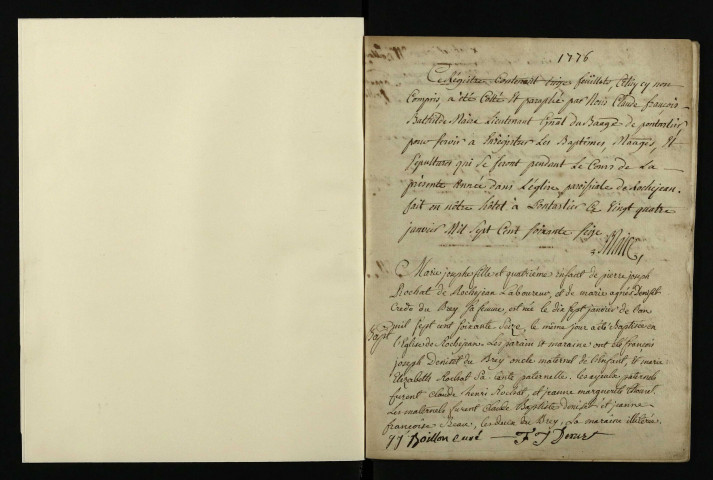 1776
Ce Régistre Contenant seize feuillets, Celuy cy non
Compris, a été Cotté Et paraphé par Nous Claude francois
Bathilde Maire Lieutenant Gnal du Baage de pontarlier
pour servir a Enrégistrer Les Baptêmes, Mariages, Et
Sepultures qui Se feront pendant Le Cours de La
présente Année dans L'église parroissiale de Rochejean.
fait en nôtre hôtel à Pontarlier Ce Vingt quatre
janvier Mil Sept Cent soixante Seize
Maire
Marie josephe fille et quatrième enfant de pierre joseph
Rochat de Rochejean Laboureur, et de marie agnès Deniset
du Brey sa femme, est née le dix sept janvier de l'an
mil sept cent soixante Seize, le même jour a été Baptisée en
Bapt
l'Eglise de Rochejean. Les parain et maraine ont été françois
joseph Deniset du Brey oncle maternel de l'Enfant, et marie
Elizabeth Rochat sa tante paternelle. les ayeuls paternels
furent claude henri Rochat, et jeanne marguerite
Les maternels furent claude Baptiste deniset et jeanne
françoise les deux du Brey, La maraine illiterée.
Boillon curé F J Denizet